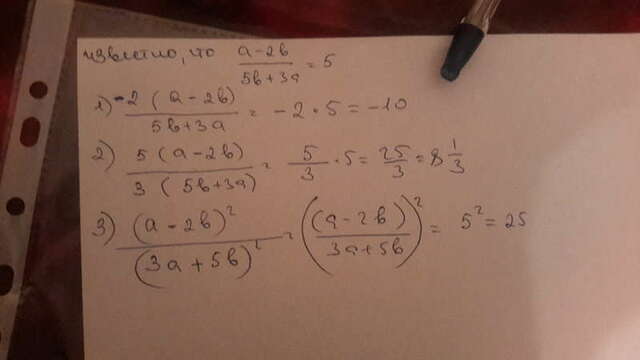 известно, что (a-2b)/(5b+3a) = 5
1) -2(a-2b)/(5b+3a) = -2·5 = -10
2) 5(a-2b)/(3(5b+3a)) = 5/3·5 = 25/3 = 8 1/3
3) (a-2b)²/(3a+5b)² = ((a-2b)/(3a+5b))² = 5² = 25